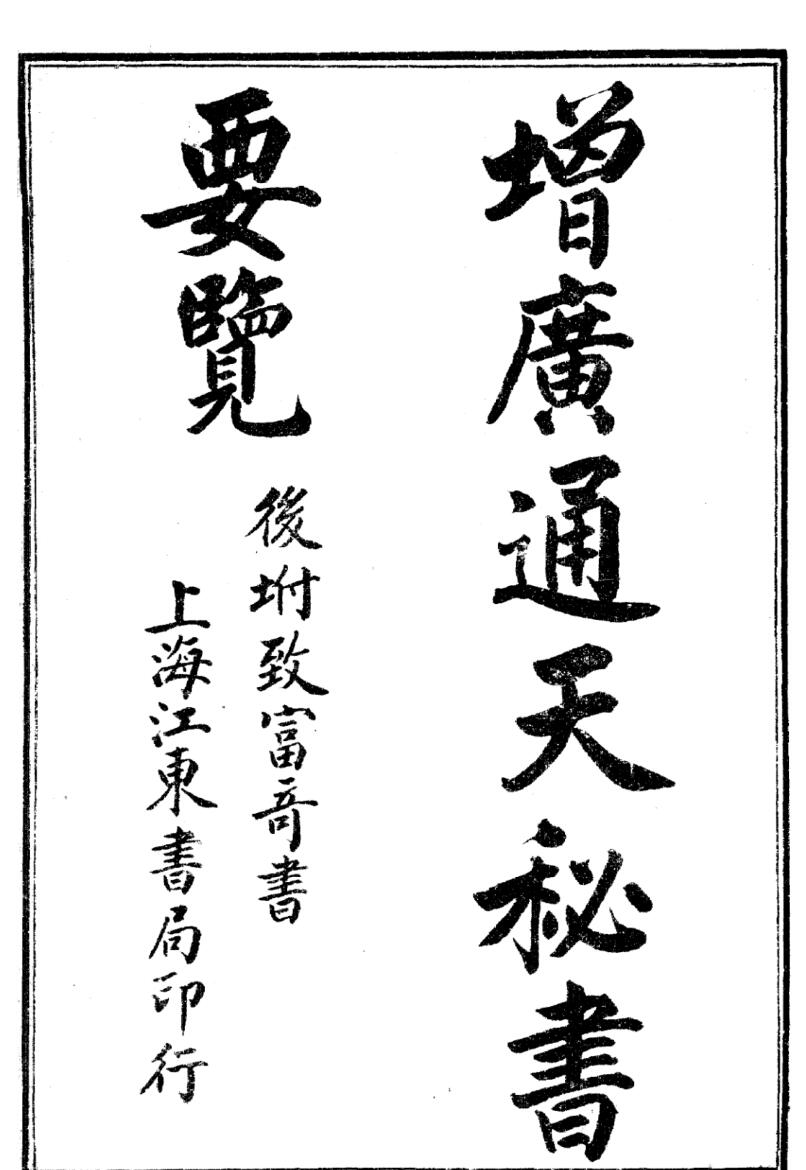 增廣通天秘書
要覽
後坿致富奇書
上海江東書局印行